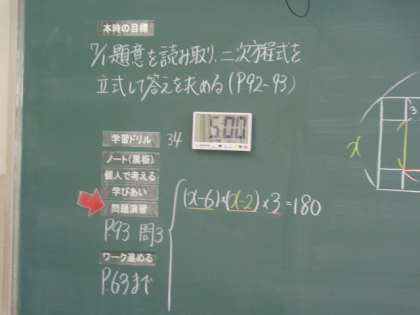 本時の目標
7/1 題意を読み取り、二次方程式を
立式して答えを求める(P92-93)
学習ドリル 34
5:00
ノート(黒板)
個人で考える
学びあい
問題演習
P93 問3
(x-6)×(x-2)×3=180
ワーク進める
P63まで
x
3